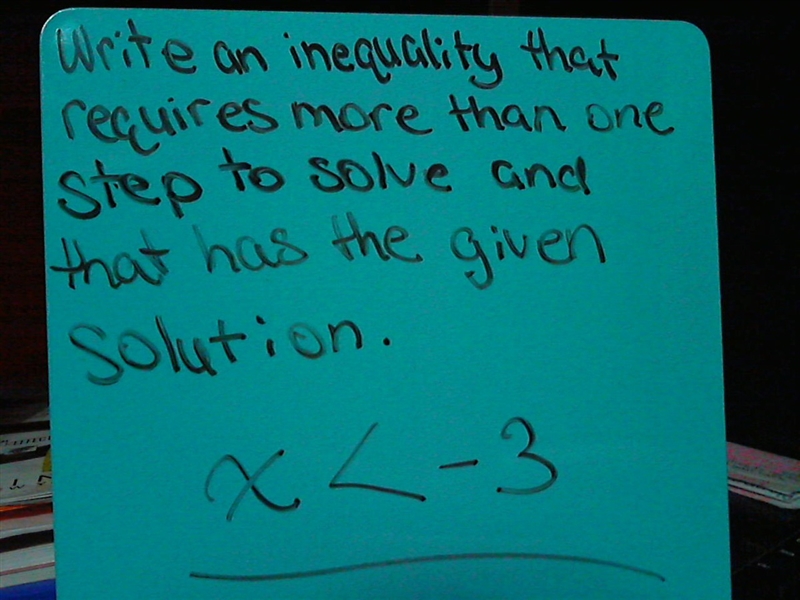 Write an inequality that
requires more than one
step to solve and
that has the given
solution.
x < -3